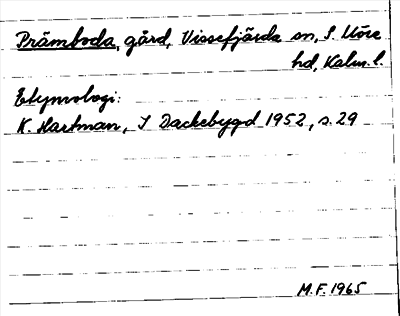 Främboda, gård, Vissefjärda sn, S. Möre
hd, Kalm. l.
Etymologi:
K. Hartman, I Dackebygd 1952, s. 29
M.F. 1965